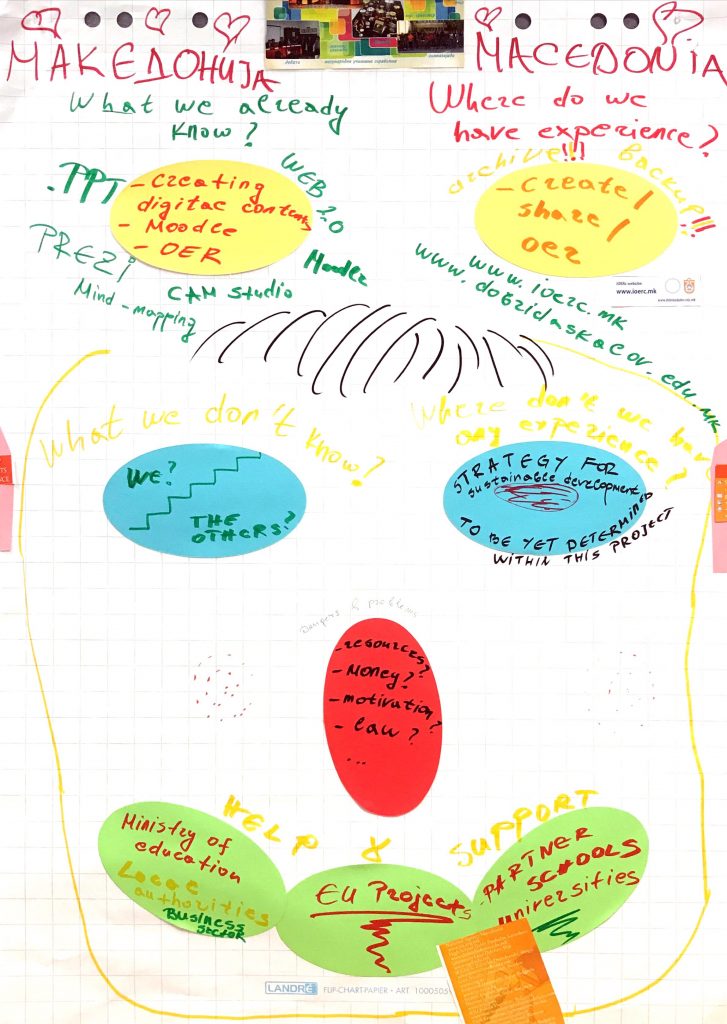 МАКЕДОНИЈА
MACEDONIA
What we already
know?
Where do we
have experience?
!!!
archive!!! backup!!!
.PPT
- Creating
digital contents
- Moodle
- OER
WEB 2.0
PREZI
Moodle
Mind-mapping
CAM Studio
- Create/
share/
oer
www.ioerc.mk
www.dobridaskacov.edu.mk
www.ioerc.mk
What we don't know?
Where don't we have
any experience?
WE?
THE
OTHERS?
STRATEGY FOR
sustainable development
TO BE YET DETERMINED
WITHIN THIS PROJECT
Dangers & problems
- resources?
- Money?
- motivation?
- law?
...
HELP & SUPPORT
Ministry of
education
Local
authorities
Business
sector
EU Projects
- PARTNER
SCHOOLS
universities
LANDRÉ FLIP-CHART-PAPIER · ART. 1000505